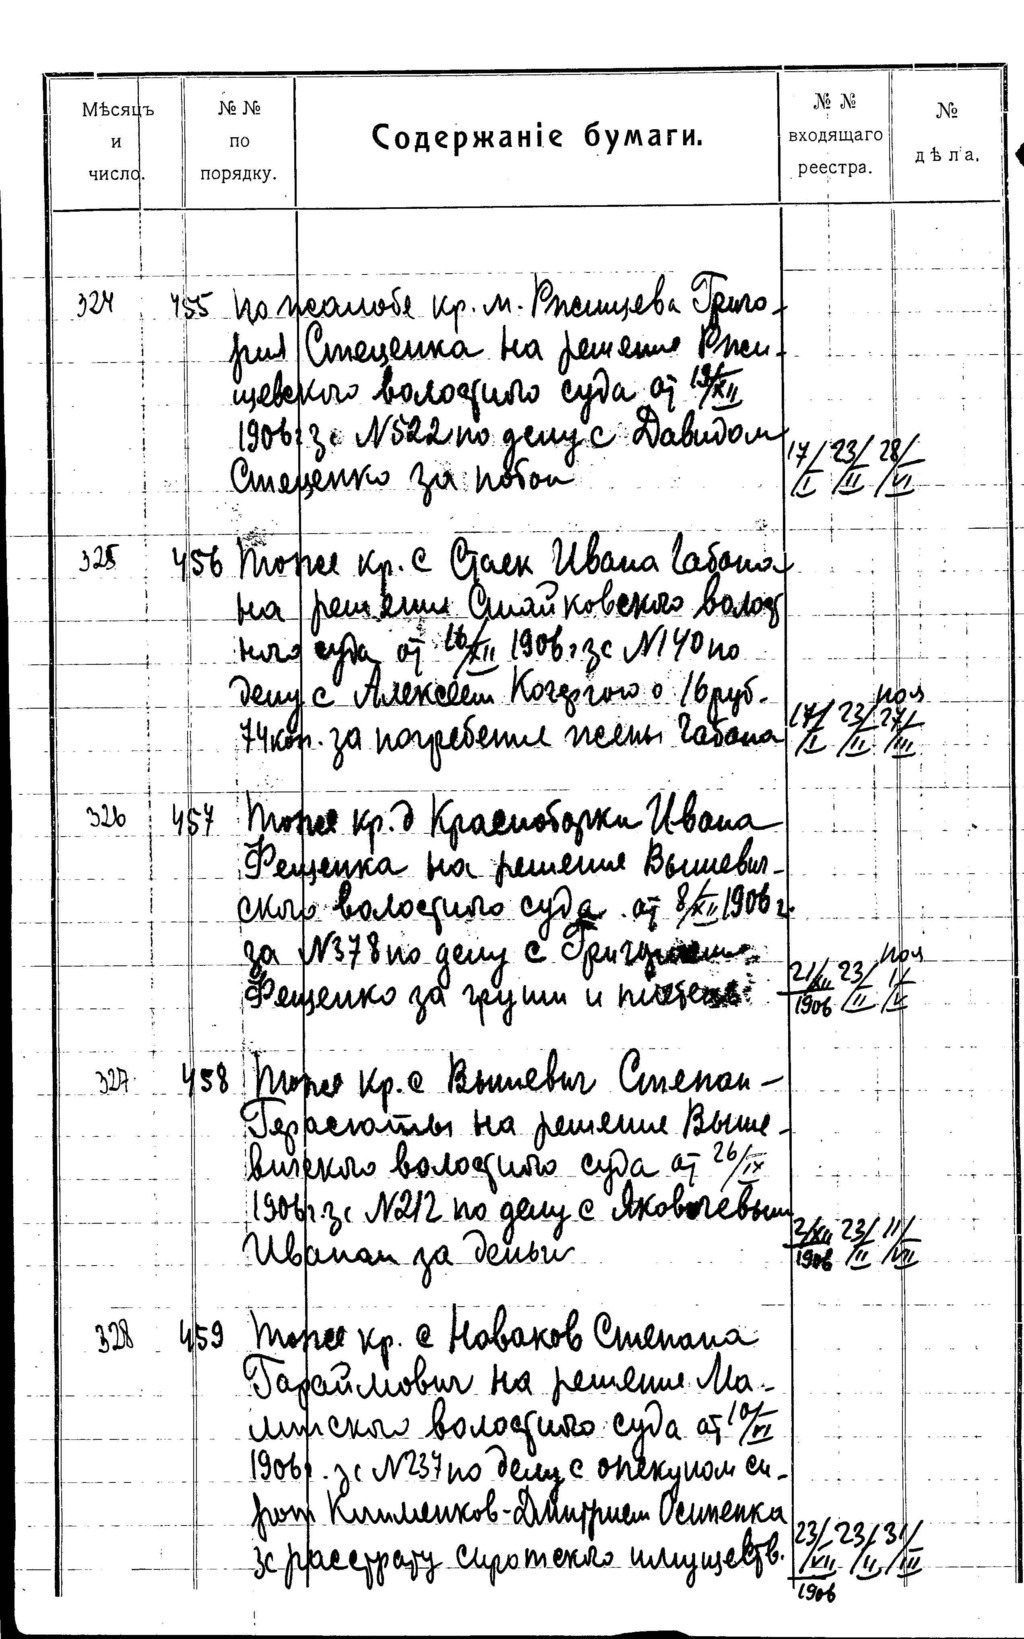 Мѣсяцъ и число.
№ № по порядку.
Содержаніе бумаги.
№ № входящаго реестра.
№ дѣла.
324 455 По жалобе кр. м. Ржищева Григо-
рия Стеценка на решение Ржи-
щевского волостного суда от 19/XII
1906 г за N522 по делу с Давидом
Стеценко за побои
17/I 23/II 28/VI
325 456 Тоже кр. с Стаек Ивана Чабана
на решение Стайковского волост
ного суда от 16/XII 1906 г за N140 по
делу с Алексеем Кочергою о 16 руб.
74 коп. за погребение жены Чабана
пол
17/I 23/II 27/III
326 457 Тоже кр. д Красноборки Ивана
Фещенка на решение Вышевич-
ского волостного суда от 8/XII 1906 г.
за N378 по делу с Григорием
Фещенко за груши и
пол
21/XII 1906 23/II 1/V
327 458 Тоже кр. с Вышевич Степан-
Герасюты на решение Выше-
вичского волостного суда от 26/IX
1906 г. за N212 по делу с Яковчевым
Иваном за деньги
2/XII 1906 23/II 11/VII
328 459 Тоже кр. с Новаков Степана
Гараймович на решение Ма-
линского волостного суда от 10/VI
1906 г. за N237 по делу с опекуном си-
рот Клименков-Дмитрием Осипенка
за растрату сиротского имуществ.
23/XII 1906 23/II 31/III